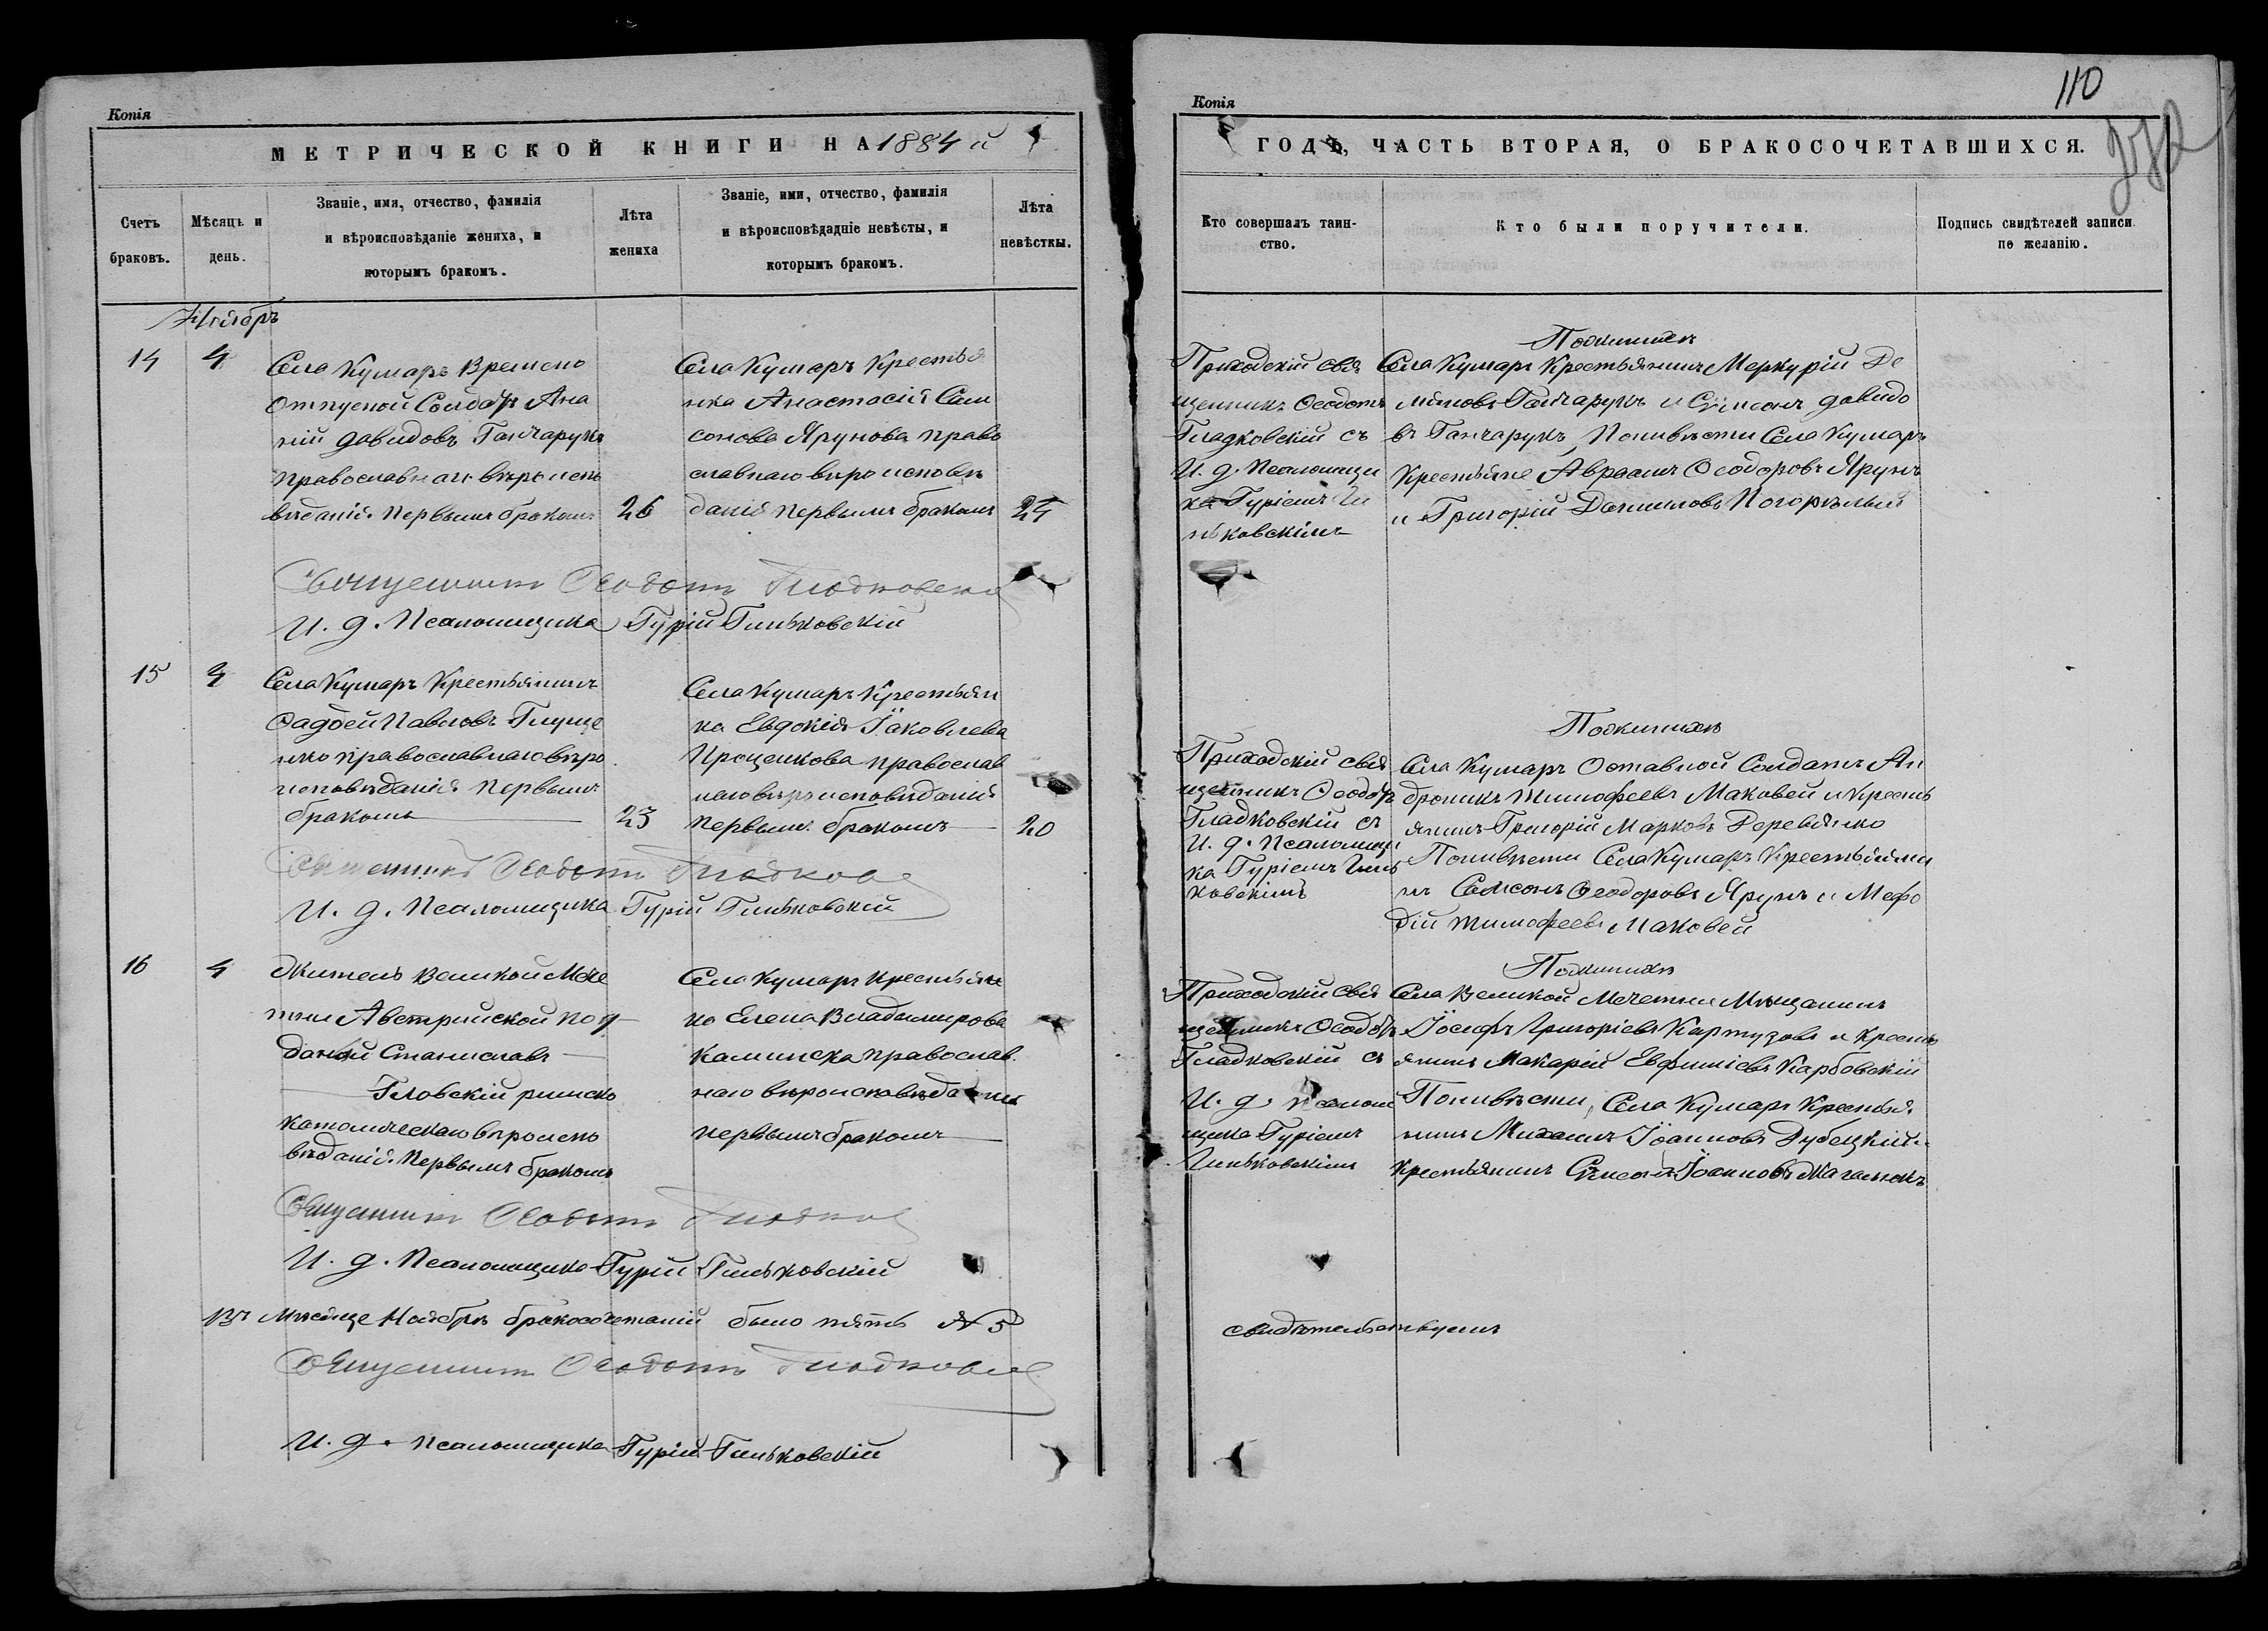 Копія
МЕТРИЧЕСКОЙ КНИГИ НА 1884 й
Счетъ браковъ.
Мѣсяцъ и день.
Званіе, имя, отчество, фамилія
и вѣроисповѣданіе жениха, и
которымъ бракомъ.
Лѣта
жениха
Званіе, ими, отчество, фамилія
и вѣроисповѣдадніе невѣсты, и
которымъ бракомъ.
Лѣта
невѣсткы.
Ноябрь
14
4
Села Кумаръ Времено
отпускной Солдатъ Ана
ній Давидовъ Ганчарукъ
православнаго вѣроиспо
вѣданія первымъ бракомъ
26
Села Кумаръ Крестья
нка Анастасія Сам
сонова Ярунова право
славнаго вѣроисповѣ
данія первымъ бракомъ
24
Священникъ Ѳеодотъ Гладковскій
И. д. Псаломщика Гурій Гиньковскій
15
4
Села Кумаръ Крестьянинъ
Фаддей Павловъ Глуще
нко православнаго вѣро
исповѣданія первымъ
бракомъ
23
Села Кумаръ Крестьян
ка Евдокія Іаковлева
Проценкова православ
наго вѣроисповѣданія
первымъ бракомъ
20
Священникъ Ѳеодотъ Гладков
И. д. Псаломщика Гурій Гиньковскій
16
4
Житель Великой Мече
тни Австрійской под
даный Станиславъ
Гловскій римско
католическаго вѣроиспо
вѣданія первымъ бракомъ
Села Кумаръ Крестьян
ка Елена Владимирова
Каминска православ
наго вѣроисповѣданія
первымъ бракомъ
Священникъ Ѳеодотъ Гладков
И. д. Псаломщика Гурій Гиньковскій
Въ Мѣсяце Ноябрѣ бракосочетаній было пять № 5
Священникъ Ѳеодотъ Гладковскій
И. д. Псаломщика Гурій Гиньковскій
Копія
110
ГОДЪ, ЧАСТЬ ВТОРАЯ, О БРАКОСОЧЕТАВШИХСЯ.
Кто совершалъ таин-
ство.
Кто были поручители.
Подпись свидѣтелей записи
по желанію.
Приходскій свя
щенникъ Ѳеодотъ
Гладковскій съ
И. д. Псаломщи
ка Гуріемъ Ги
ньковскімъ
По женихѣ
Села Кумаръ Крестьянинъ Меркурій Де
мяновъ Ганчарукъ и Сѵмеонъ Давидо
въ Ганчарукъ, По невѣсти Села Кумаръ
Крестьяне Авраамъ Ѳеодоровъ Ярунъ
и Григорій Даниловъ Погорѣлый
Приходскій свя
щенникъ Ѳеодотъ
Гладковскій съ
И. д. Псаломщи
ка Гуріемъ Гинь
ковскімъ
По женихѣ
Села Кумаръ Оставной Солдатъ Ан
дроникъ Тимофеевъ Маковей и Кресть
янинъ Григорій Марковъ Деревянко
По невѣсти Села Кумаръ Крестьяни
нъ Самсонъ Ѳеодоровъ Ярунъ и Мефо
дій Тимофеевъ Маковей
Приходскій свя
щенникъ Ѳеодотъ
Гладковскій съ
И. д. Псалом
щика Гуріемъ
Гиньковскімъ
По женихѣ
Села Великой Мечетни Мѣщанинъ
Іосифъ Григоріевъ Картузовъ и Кресть
янинъ Макарій Евфиміевъ Карбовскій
По невѣсти, Села Кумаръ Крестья
нинъ Михаилъ Іоанновъ Дубецкій и
Крестьянинъ Сѵмеонъ Іоанновъ
свидѣтельствуемъ